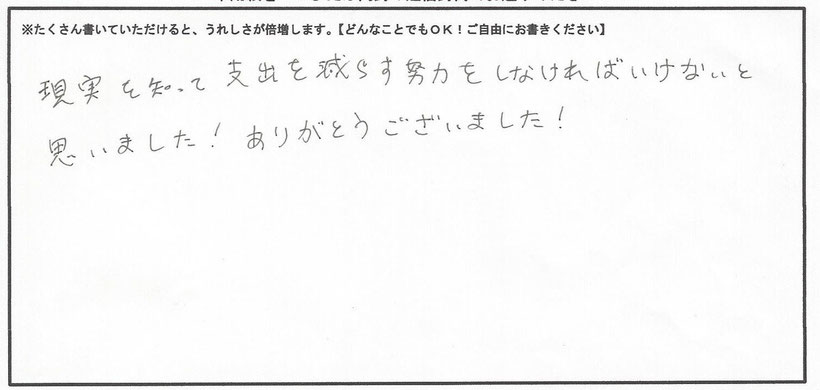 ※たくさん書いていただけると、うれしさが倍増します。【どんなことでもOK！ご自由にお書きください】
現実を知って支出を減らす努力をしなければいけないと
思いました！ありがとうございました！